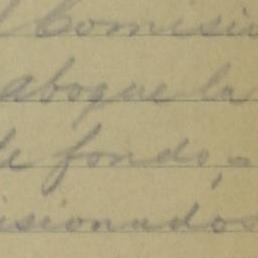 Comisio
aboque la
de fondo,-
isionados